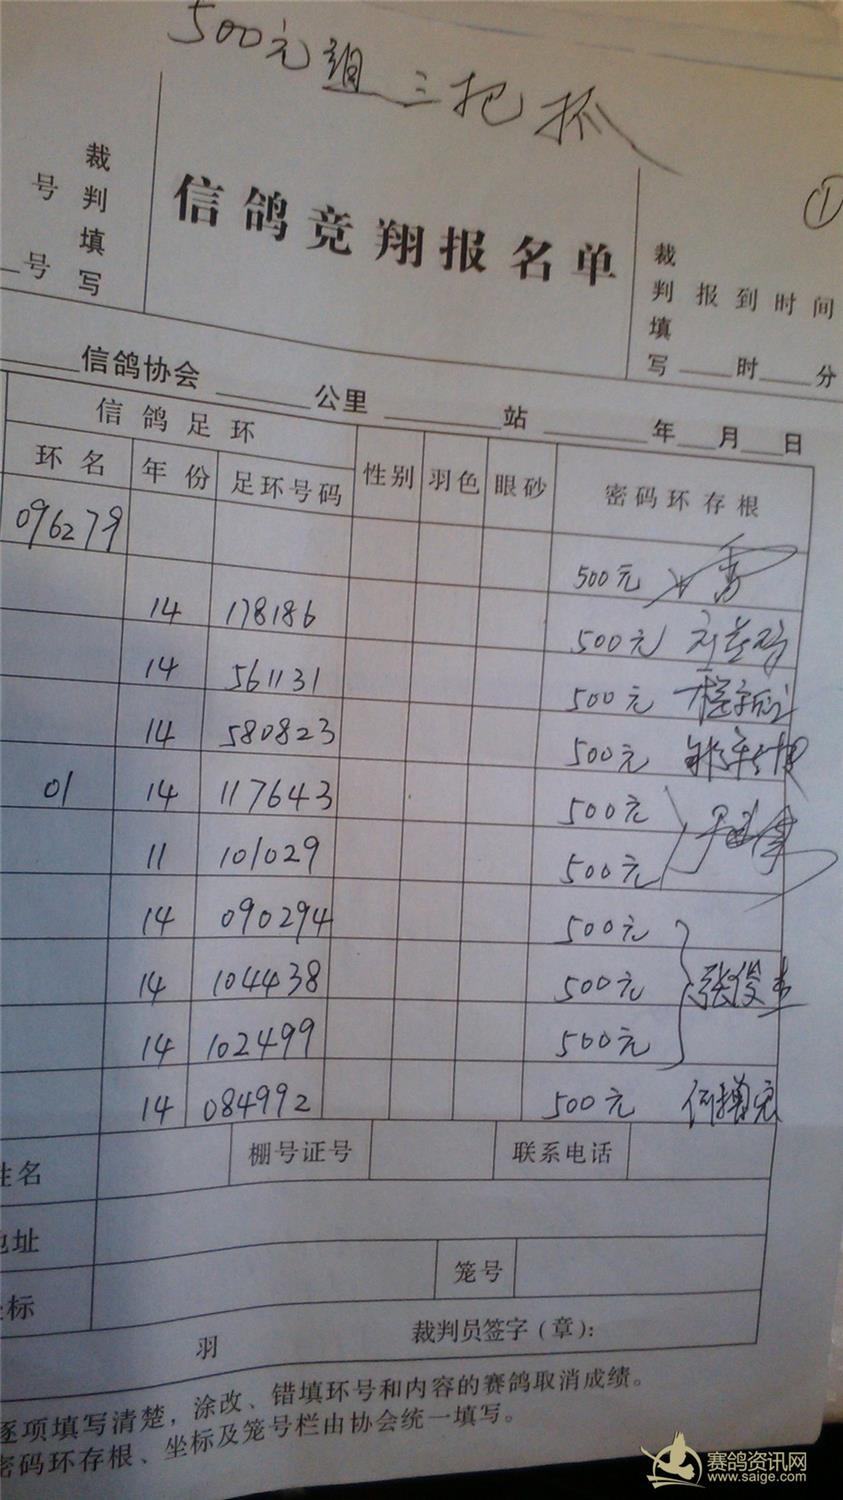 500元组 三把抓
①
裁判填写
号
号
信鸽竞翔报名单
裁判填写
报到时间
时 分
信鸽协会 公里 站 年 月 日
信鸽足环
环名 年份 足环号码 性别 羽色 眼砂 密码环存根
096279 500元
14 178186 500元
14 561131 500元
14 580823 500元
01 14 117643 500元
11 101029 500元
14 090294 500元
14 104438 500元 张俊杰
14 102499 500元
14 084992 500元
姓名 棚号证号 联系电话
地址
坐标 笼号
羽 裁判员签字(章):
逐项填写清楚，涂改、错填环号和内容的赛鸽取消成绩。
密码环存根、坐标及笼号栏由协会统一填写。
赛鸽资讯网
www.saige.com